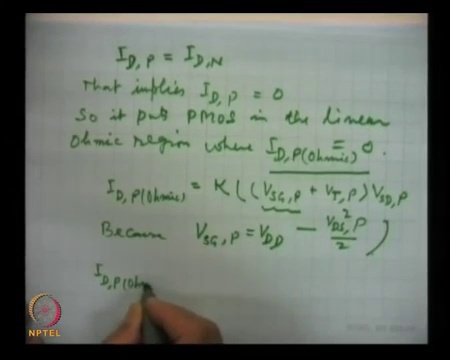 I_D,P = I_D,N
That implies I_D,P = 0
So it puts PMOS in the linear
Ohmic region where I_D,P(Ohmic) = 0.
I_D,P(Ohmic) = K ((V_SG,P + V_T,P) V_SD,P
Because V_SG,P = V_DD - V_DS,P²/2 )
I_D,P(Ohm
NPTEL